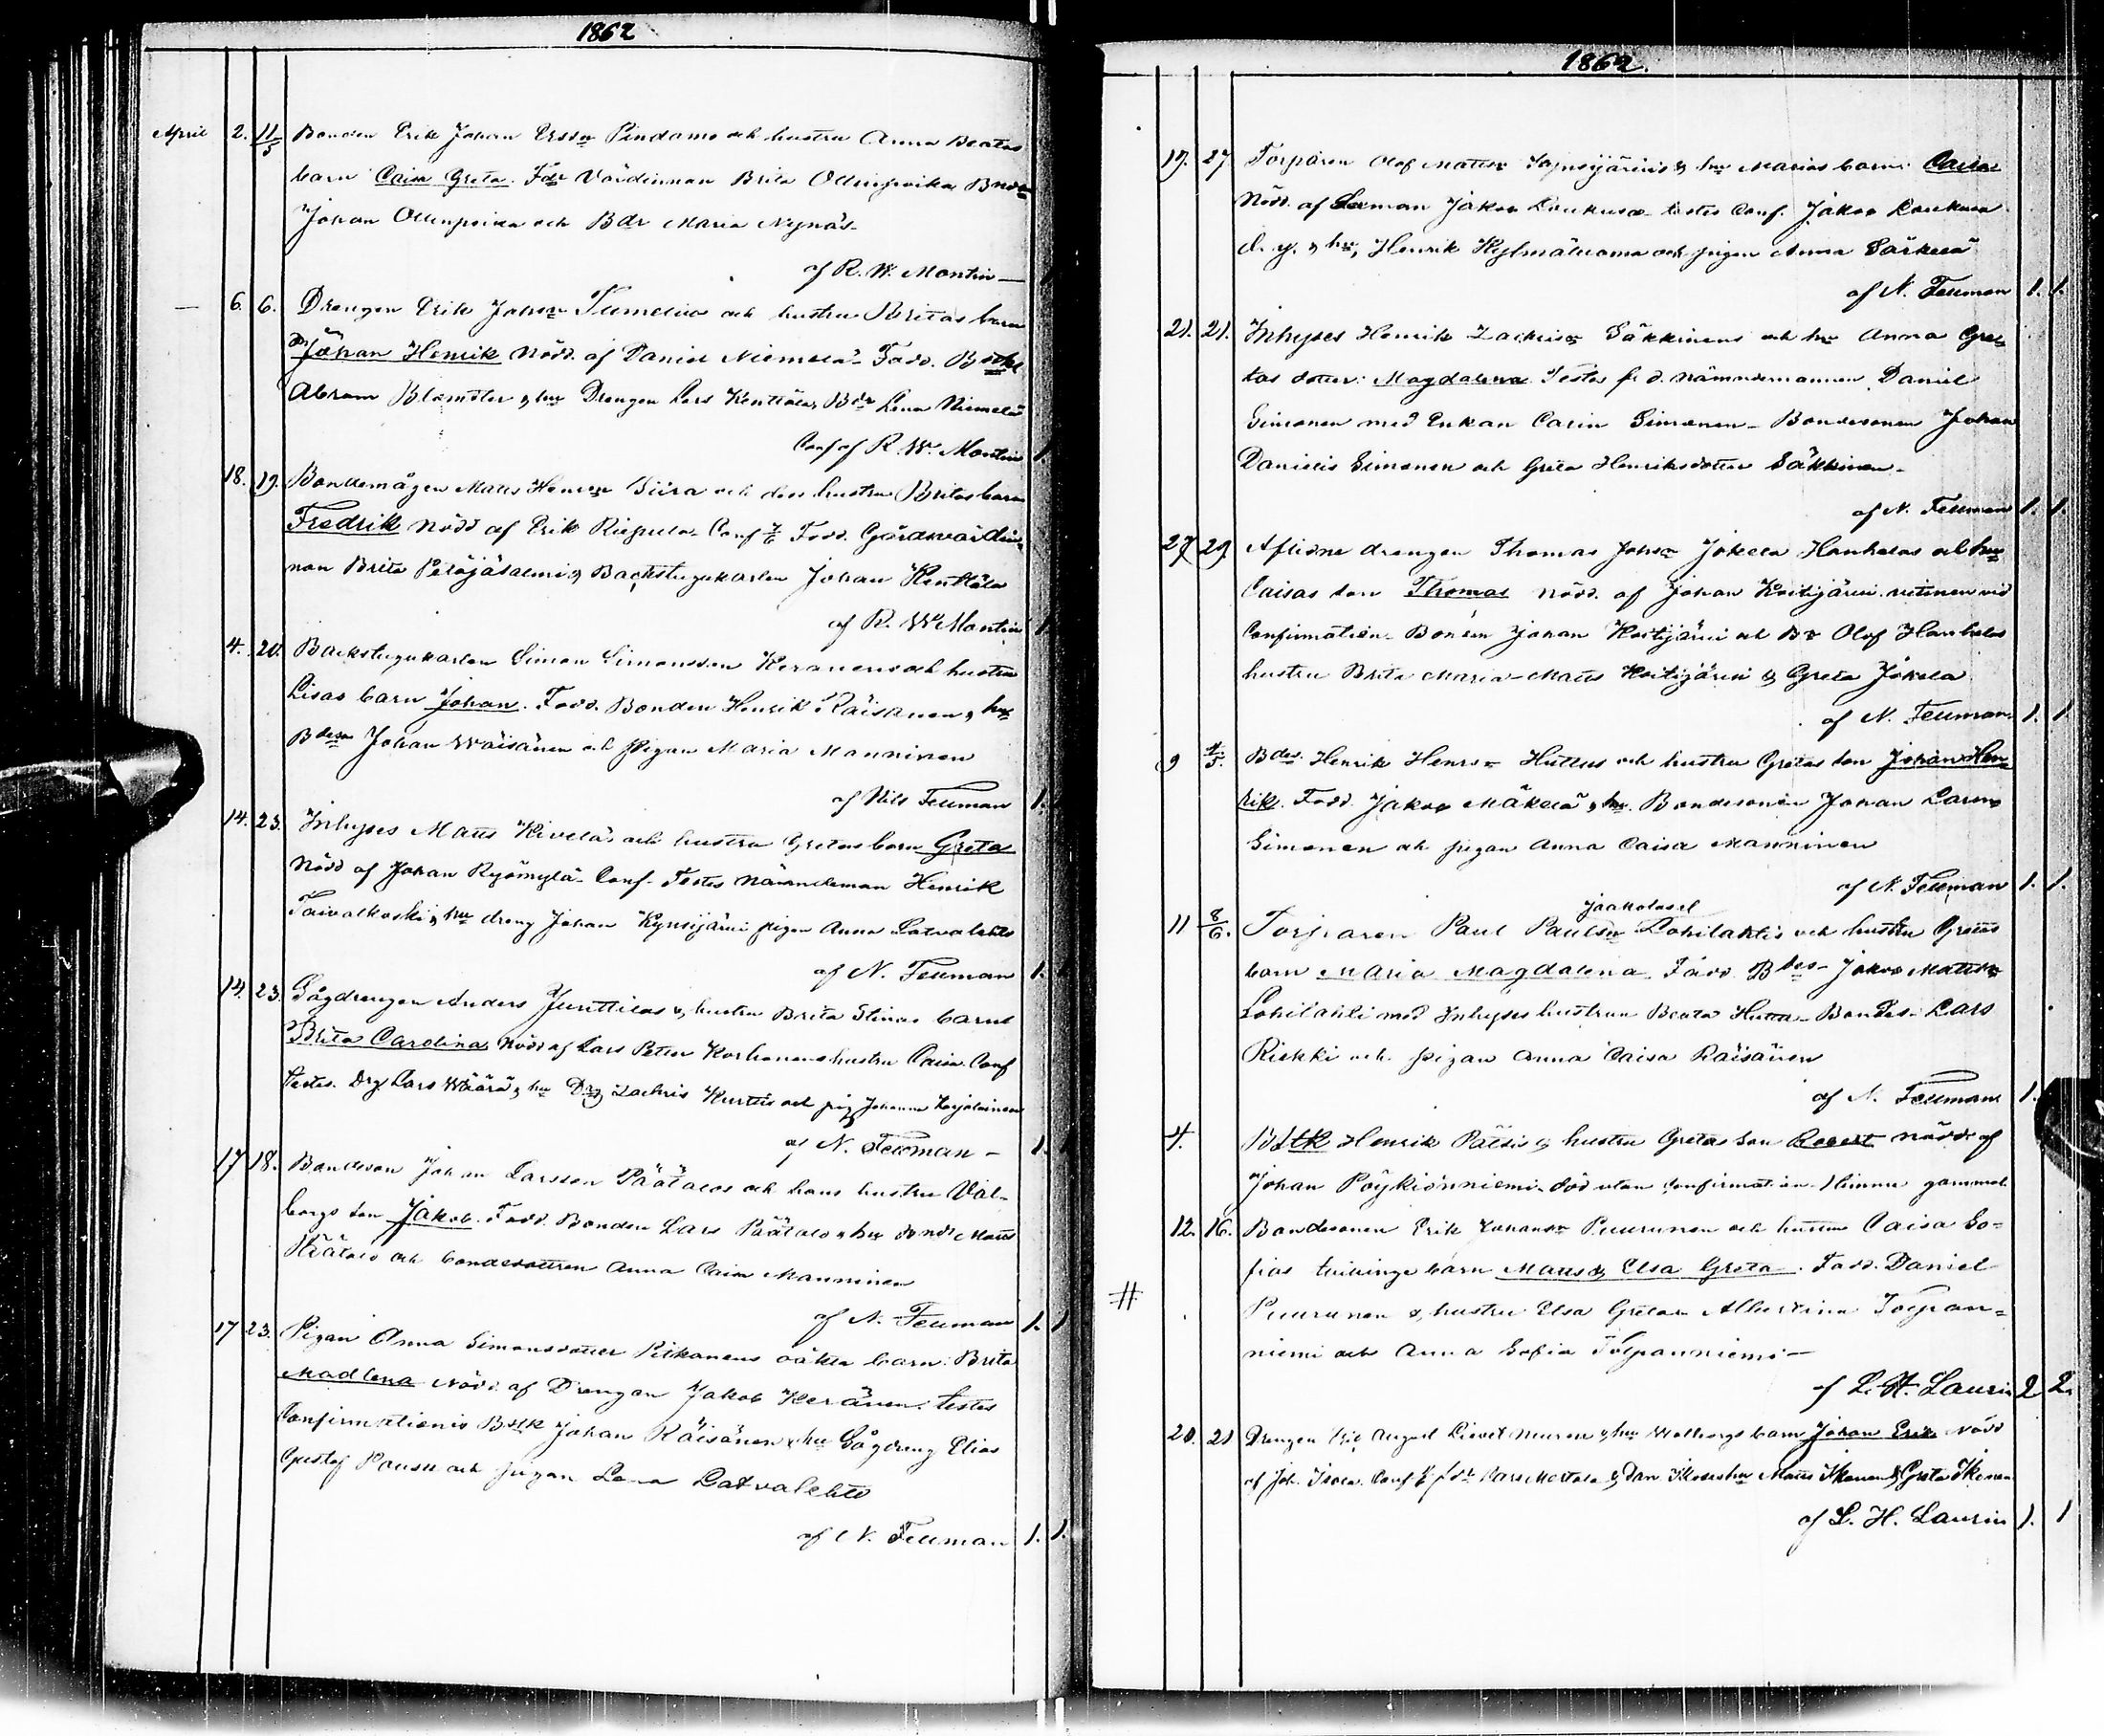 1862
April 2. 11/5 Bonden Erik Johan Ersson Pindamo och hustru Anna Beatas
barn Caisa Greta. Fdr Värdinnan Brita Ollinpoika
Johan Ollinpoika och Bdr Maria Nynäs
af R. W. Montin
6. 6. Drengen Erik Johsn och hustru Britas barn
Johan Henrik Nödd. af Daniel Niemelä. Fadd. Bstkl
Abram Blomster & hu Drengen Lars Kenttälä, Bdr Lena Niemelä
Conf af R. W. Montin 1
18. 19. Bondemågen Matts Henrsn Siira och dess hustru Britas barn
Fredrik nödd af Erik Riepula Conf Fadd. Gårdsvärdin-
nan Brita Peräjäsalmi & Backstugukarlen Johan Kenttälä
af R. W. Montin 1
4. 20. Backstugukarlen Simon Simonsson Keränens och hustru
Lisas barn Johan. Fadd. Bonden Henrik Räisänen & hu
Bdesn Johan Wäisänen och Pigan Maria Manninen
af Nils Fellman 1.
14. 23. Inhyses Matts Kivelä och hustru Gretas barn Greta
Nödd af Johan Ryömylä Conf. Testes Nämndeman Henrik
Taivalkoski & hu dreng Johan Kynsijärvi pigan Anna Latvalehto
af N. Fellman 1.
14. 23. Sågdrengen Anders & hustru Brita Stinas barn
Brita Carolina Nödd af Lars Petter Korhonens hustru Caisa Conf
testes. Drg Lars Wäärä & hu Drg Zachris Kurttis och pig Johanna Karjalainen
af N. Fellman 1.
17 18. Bondeson Johan Larsson Päätalos och hans hustru Val-
borgs son Jakob. Fadd. Bonden Lars Päätalo & hu Matts
Päätalo och bondedottren Anna Caisa Manninen
af N. Fellman 1. 1
17 23. Pigan Anna Simonsdotter Pitkänens oäkta barn: Brita
Madlena Nödd af Drengen Jakob Keränen. testes
Confirmationis Bstk Johan Räisänen & hu Sågdreng Elias
Gustaf och pigan Lena Latvalehto
af N. Fellman 1. 1.
1862.
19. 27 Torparen Olof Mattsn & hu Marias barn Caisa
Nödd. af Jakob Loukusa testes Conf. Jakob Loukusa
d. y. & hu, Henrik Hylmäluoma och pigan Anna Särkelä
af N. Fellman 1. 1.
21. 21. Inhyses Henrik Zachrisn Säkkinens och hu Anna Gre-
tas dotter: Magdalena Testes f. d. nämndemannen Daniel
Simonen med Enkan Carin Simonen Bondesonen Johan
Daniels Simonen och Greta Henriksdotter Säkkinen
af N. Fellman 1. 1.
27 29 Aflidne drengen Thomas Johsn Jokela Hanhelas och hu
Caisas son Thomas nödd. af Johan Koitijärvi. vitinen vid
Confirmation Bonden Johan Koitijärvi och Br Olof Hanhelas
hustru Brita Maria Matts Koitijärvi & Greta Jokela
af N. Fellman 1. 1
9 4/5. Bdes. Henrik Henrsn Huttus och hustru Gretas son Johan Hen-
rik. Fadd. Jakob Mäkelä & hu. Bondesonen Johan Larsn
Simonen och pigan Anna Caisa Manninen
af N. Fellman 1. 1.
11 8/6. Torparen Paul Paulsn Lohilahtis och hustru Gretas
barn Maria Magdalena. Fadd Bdes Jakob Mattsn
Lohilahti med Inhyses hustrun Beata Huttu Bondes. Lars
Riekki och pigan Anna Caisa Räisänen
af N. Fellman 1.
4. Bstk Henrik Pätsi & hustru Gretas son Robert nödd af
Johan Pöykiönniemi död utan Confirmation timme gammal
12. 16. Bondesonen Erik Johansn Puurunen och hustru Caisa So-
fias tvillinge barn Matts & Elsa Greta. Fadd. Daniel
# Puurunen & hustru Elsa Greta Albertina Tolpan-
niemi och Anna Sofia Tolpanniemi
af L. H. Laurin 2 2.
20. 21 Drengen Erik August & hu Walborgs barn Johan Erik Nödd
af Joh. Isola. Conf Matts Ikonen & Greta Ikonen
af L. H. Laurin 1. 1